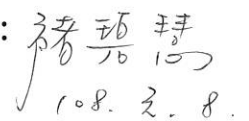 : 褚碧慧
108. 2. 8.